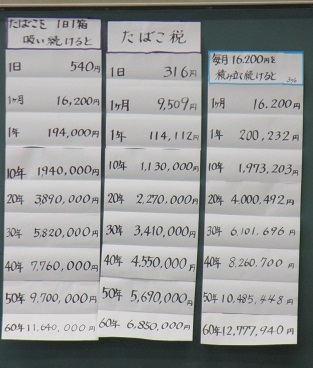 たばこを 1日1箱
吸い続けると
1日 540円
1ヶ月 16,200円
1年 194,000円
10年 1940,000円
20年 3890,000円
30年 5,820,000円
40年 7,760,000円
50年 9,700,000円
60年 11,640,000円
たばこ税
1日 316円
1ヶ月 9,509円
1年 114,112円
10年 1,130,000円
20年 2,270,000円
30年 3,410,000円
40年 4,550,000円
50年 5,690,000円
60年 6,850,000円
毎月16.200円を
積み立て続けると
1ヶ月 16.200円
1年 200,232円
10年 1,973,203円
20年 4.000,492円
30年 6,101,696円
40年 8,260,700円
50年 10,485,448円
60年 12,777,940円